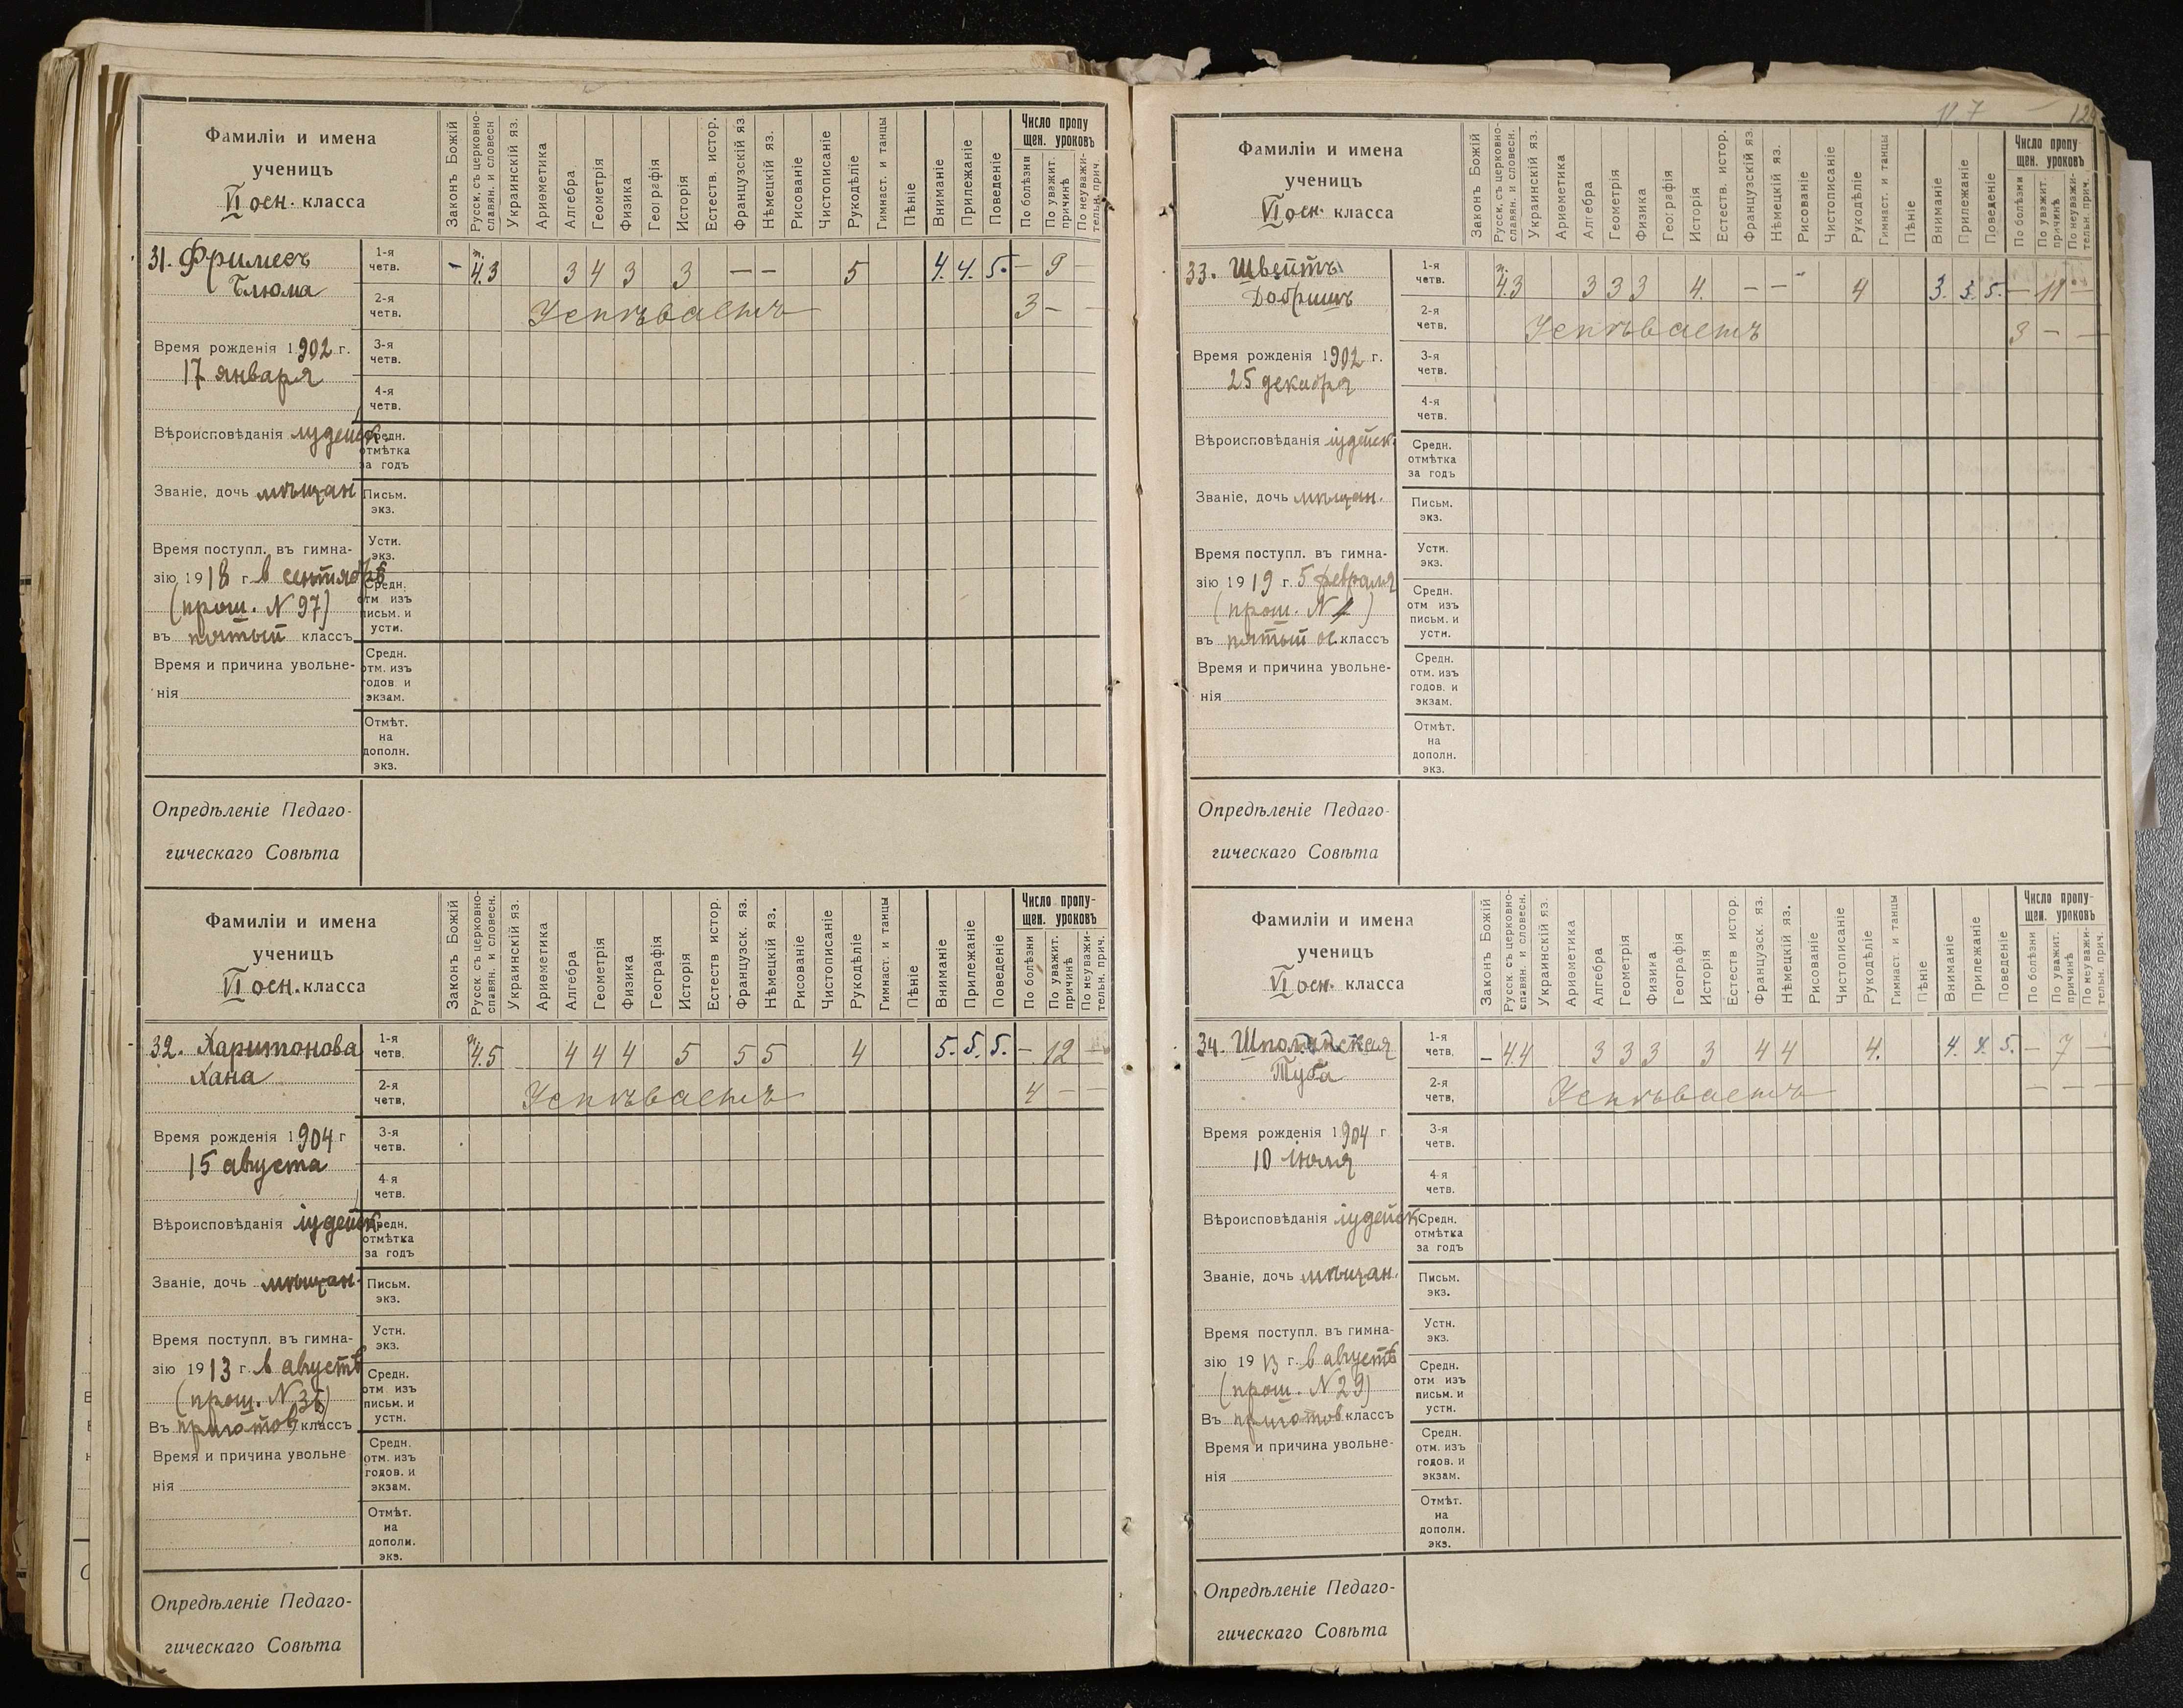 Фамиліи и имена
ученицъ
VI осн. класса
Законъ Божій
Русск. съ церковно-
славян. и словесн
Украинскій яз.
Ариѳметика
Алгебра
Геометрія
Физика
Географія
Исторія
Естеств. истор.
Французскій яз
Нѣмецкій яз.
Рисованіе
Чистописаніе
Рукодѣліе
Гимнаст. и танцы
Пѣніе
Вниманіе
Прилежаніе
Поведеніе
Число пропу
щен. уроковъ
По болѣзни
По уважит.
причинѣ
По неуважи-
тельн. прич.
31. Фримесъ
Блюма
1-я
четв.
- 4.3 3 4 3 3 — — 5 4. 4. 5. — 9 —
2-я
четв.
Успѣваетъ 3 —
Время рожденія 1902 г.
17 января
3-я
четв.
4-я
четв.
Вѣроисповѣданія іудейск.
Средн.
отмѣтка
за годъ
Званіе, дочь мѣщан
Письм.
экз.
Время поступл. въ гимна-
зію 1918 г. в сентябрѣ
(прош. N 97)
въ пятый классъ
Устн.
экз.
Средн.
отм изъ
письм. и
устн.
Время и причина увольне-
нія
Средн.
отм. изъ
годов и
экзам.
Отмѣт.
на
дополн.
экз.
Опредѣленіе Педаго-
гическаго Совѣта
Фамиліи и имена
ученицъ
VI осн. класса
Законъ Божій
Русск. съ церковно-
славян. и словесн.
Украинскій яз.
Ариѳметика
Алгебра
Геометрія
Физика
Географія
Исторія
Естеств истор.
Французск. яз.
Нѣмецкій яз.
Рисованіе
Чистописаніе
Рукодѣліе
Гимнаст. и танцы
Пѣніе
Вниманіе
Прилежаніе
Поведеніе
Число пропу-
щен. уроковъ
По болѣзни
По уважит.
причинѣ
По неуважи-
тельн. прич.
32. Харитонова
Хана
1-я
четв.
4.5 4 4 4 5 5 5 4 5. 5. 5. — 12
2-я
четв.
Успѣваетъ 4 — —
Время рожденія 1904 г
15 августа
3-я
четв.
4-я
четв.
Вѣроисповѣданія іудейск.
Средн.
отмѣтка
за годъ
Званіе, дочь мѣщан.
Письм.
экз.
Время поступл. въ гимна-
зію 1913 г. в августѣ
(прош. N 35)
Въ приготов классъ
Устн.
экз.
Средн.
отм изъ
письм. и
устн.
Время и причина увольне
нія
Средн.
отм. изъ
годов. и
экзам.
Отмѣт.
на
дополн.
экз.
Опредѣленіе Педаго-
гическаго Совѣта
Фамиліи и имена
ученицъ
VI осн. класса
Законъ Божій
Русск. съ церковно-
славян. и словесн.
Украинскій яз.
Ариѳметика
Алгебра
Геометрія
Физика
Географія
Исторія
Естеств. истор.
Французскій яз.
Нѣмецкій яз.
Рисованіе
Чистописаніе
Рукодѣліе
Гимнаст. и танцы
Пѣніе
Вниманіе
Прилежаніе
Поведеніе
Число пропу-
щен. уроковъ
По болѣзни
По уважит.
причинѣ
По неуважи-
тельн. прич.
33. Швейтъ
Добришъ
1-я
четв.
4.3 3 3 3 4. — — - 4 3. 3. 5. — 11 —
2-я
четв.
Успѣваетъ 3 — —
Время рожденія 1902 г.
25 декабря
3-я
четв.
4-я
четв.
Вѣроисповѣданія іудейск.
Средн.
отмѣтка
за годъ
Званіе, дочь мѣщан.
Письм.
экз.
Время поступл. въ гимна-
зію 1919 г. 5 февраля
(прош. N 1)
въ пятый ос. классъ
Устн.
экз.
Средн.
отм изъ
письм. и
устн.
Время и причина увольне-
нія
Средн.
отм. изъ
годов. и
экзам.
Отмѣт.
на
дополн.
экз.
Опредѣленіе Педаго-
гическаго Совѣта
Фамиліи и имена
ученицъ
VI осн. класса
Законъ Божій
Русск. съ церковно-
славян. и словесн.
Украинскій яз.
Ариѳметика
Алгебра
Геометрія
Физика
Географія
Исторія
Естеств истор.
Французск. яз.
Нѣмецкій яз.
Рисованіе
Чистописаніе
Рукодѣліе
Гимнаст. и танцы
Пѣніе
Вниманіе
Прилежаніе
Поведеніе
Число пропу-
щен. уроковъ
По болѣзни
По уважит.
причинѣ
По неуважи-
тельн. прич.
34. Шполянская
Туба
1-я
четв.
- 4 4 3 3 3 3 4 4 4. 4. 4. 5. — 7 —
2-я
четв,
Успѣваетъ — — —
Время рожденія 1904 г
10 іюля
3-я
четв.
4-я
четв.
Вѣроисповѣданія іудейск
Средн.
отмѣтка
за годъ
Званіе, дочь мѣщан.
Письм.
экз.
Время поступл. въ гимна-
зію 1913 г. в августѣ
(прош. N 29)
Въ приготов классъ
Устн.
экз.
Средн.
отм изъ
письм. и
устн.
Время и причина увольне-
нія
Средн.
отм. изъ
годов. и
экзам.
Отмѣт.
на
дополн.
экз.
Опредѣленіе Педаго-
гическаго Совѣта